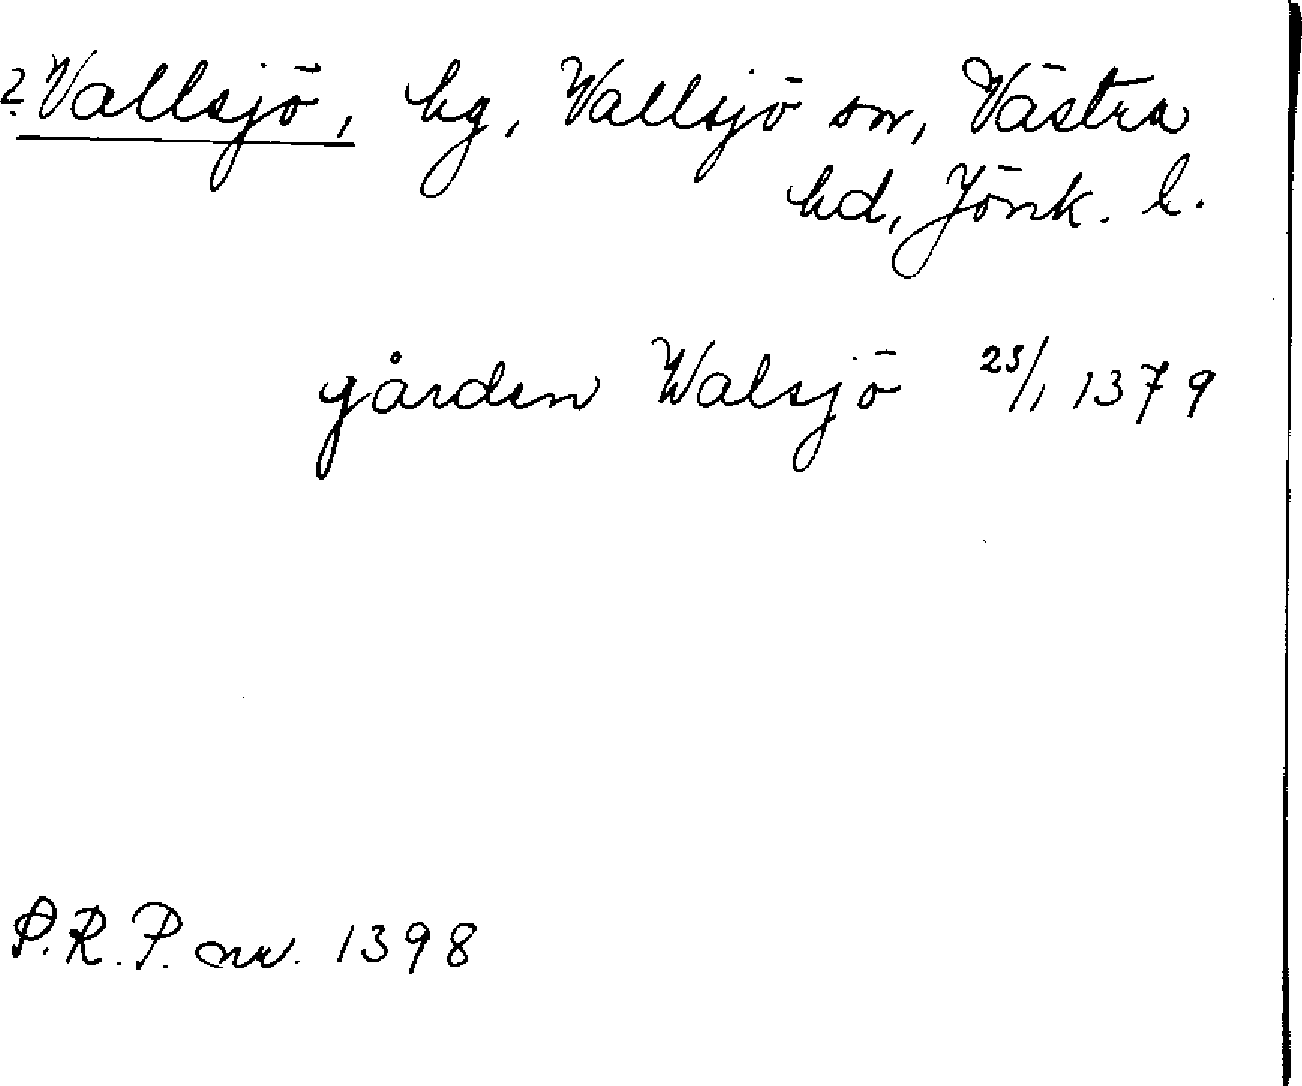 ?. Vallsjö, hg, Vallsjö sn, Västra
hd, Jönk. l.
gården Walsjö 25/1 1379
P.R.P. nr. 1398